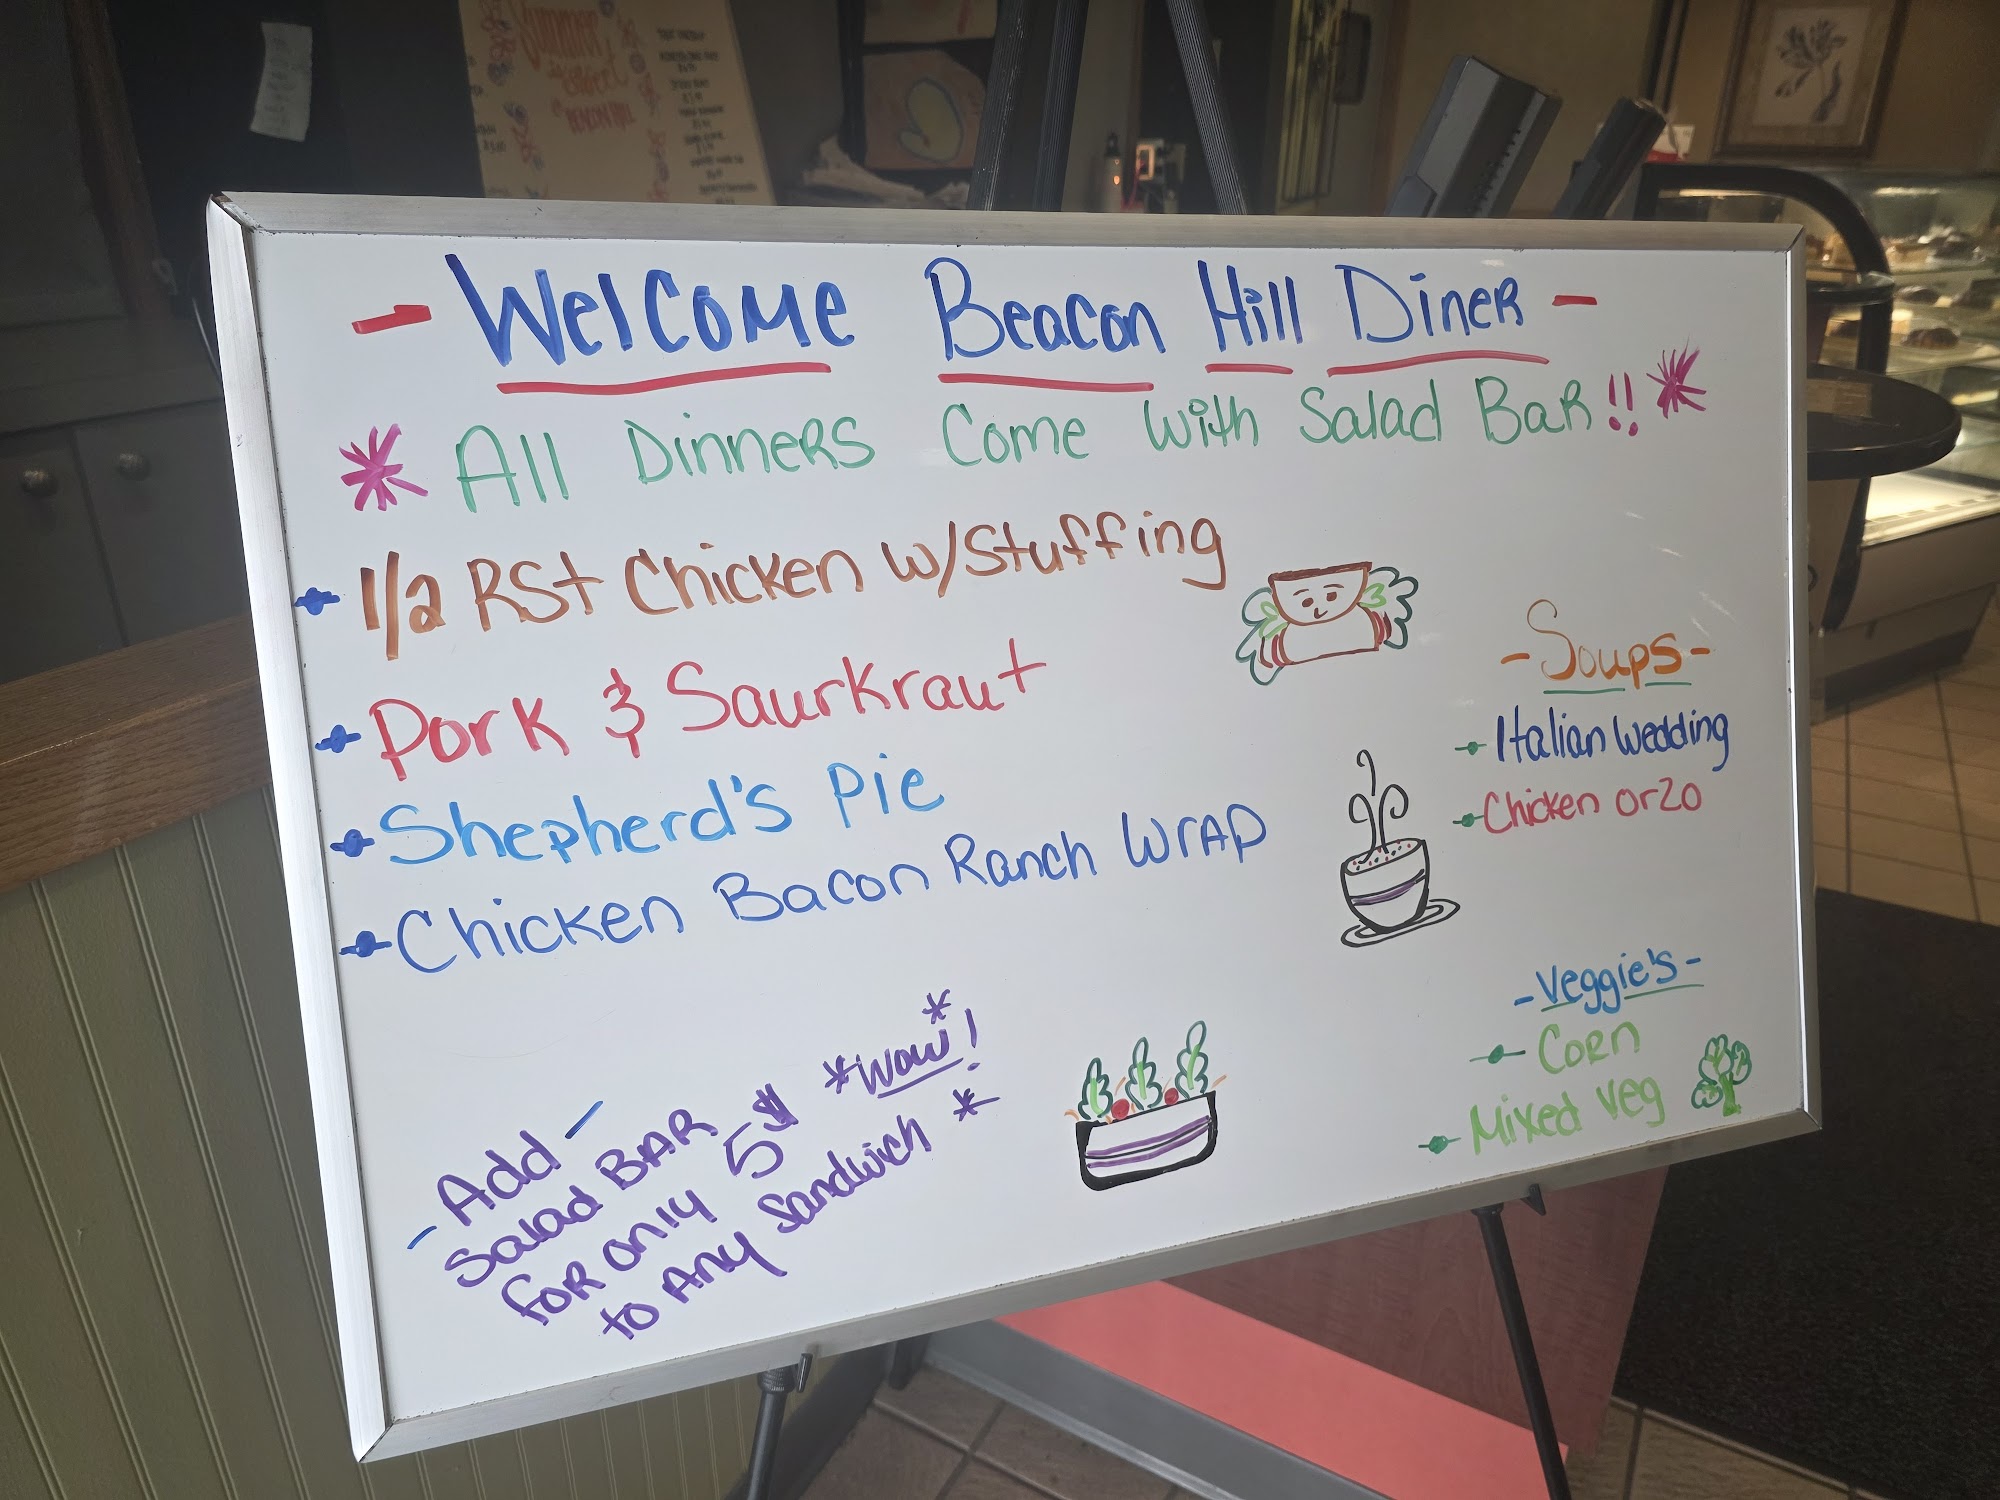 Summer
is sweet
@
BEACON HILL
- Welcome Beacon Hill Diner -
* All Dinners Come with Salad Bar!! *
1/2 RSt Chicken w/Stuffing
Pork & Saurkraut
Shepherd's Pie
Chicken Bacon Ranch Wrap
- Soups -
Italian Wedding
Chicken orzo
- Veggie's -
Corn
Mixed Veg
- Add -
Salad BAR
for only 5$ *Wow!*
to Any Sandwich *